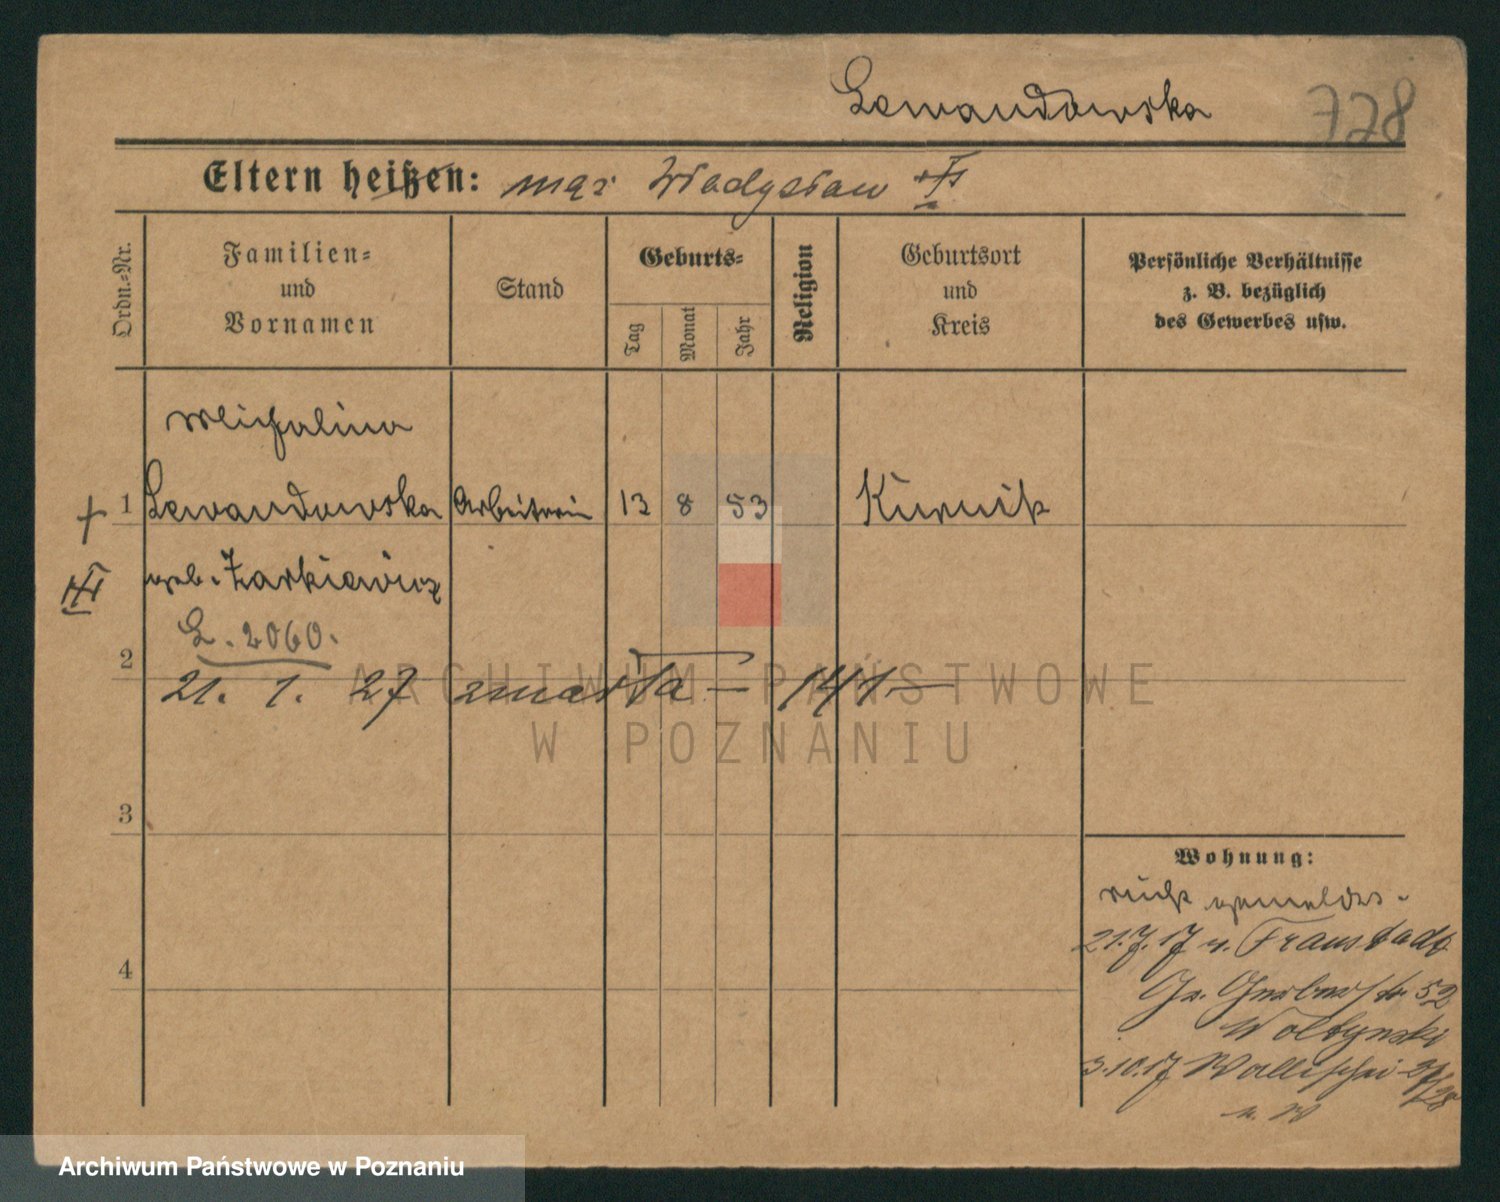 Lewandowska
728
Eltern heißen: mąż Władysław
Ordn.-Nr.
Familien-
und
Vornamen
Stand
Geburts-
Tag
Monat
Jahr
Religion
Geburtsort
und
Kreis
Persönliche Verhältnisse
z. B. bezüglich
des Gewerbes usw.
Michalina
1 Lewandowska Arbeiterin 13 8 53 Kurnik
geb. Żarkiewicz
L. 2060.
2
21. 1. 27 zmarła - 141 -
3
4
Wohnung:
nicht gemeldet.
21.7.17 v. Fraustadt
Gr. Gerberstr 52
Woltynski
3.10.17 Wallischei
ARCHIWUM PAŃSTWOWE
W POZNANIU
Archiwum Państwowe w Poznaniu